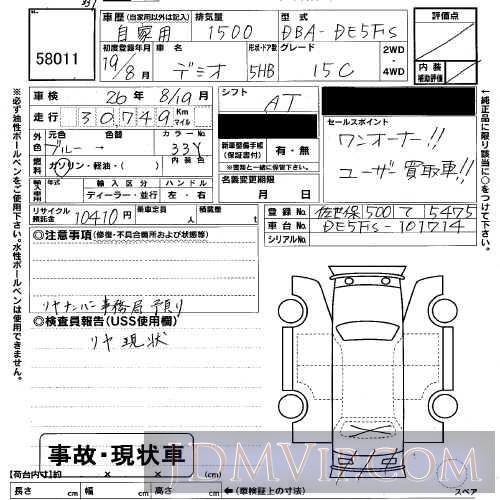 58011
車歴 (自家用以外は記入)
自家用
排気量
1500
型式
DBA- DE5FS
評価点
初度登録年月
19/8月
車名
デミオ
形状・ドア数
5HB
グレード
15C
2WD
・
4WD
内装
補助評価
車検 26年 8/19月
シフト AT
走行 30,749 Km マイル
外色
元色 色替
ブルー →
カラーNo.
33Y
内装色
燃料
ガソリン・軽油・( )
新車整備手帳
(保証書付)
有・無
※書類と一緒に保管して下さい。
輸入車用
年式
輸入区分
ディーラー・並行
ハンドル
左・右
名義変更期限
月 日
セールスポイント
ワンオーナー!!
ユーザー買取車!!
リサイクル預託金 10410円
乗車定員 人
積載量 t
登録No. 佐世保 500 て 5475
車台No. DE5FS-101714
シリアルNo.
◎注意事項 (修復・不具合箇所および状態等)
リヤナンバー事務局預り
◎検査員報告(USS使用欄)
リヤ現状
事故・現状車
JDMVIP.COM
【荷台内寸】約 × × (cm)
長さ cm 幅 cm 高さ cm ←(車検証上の寸法)
スペア
※必ず油性ボールペンをご使用下さい。水性ボールペンは使用できません。
←純正品に限り該当に○をつけて下さい。